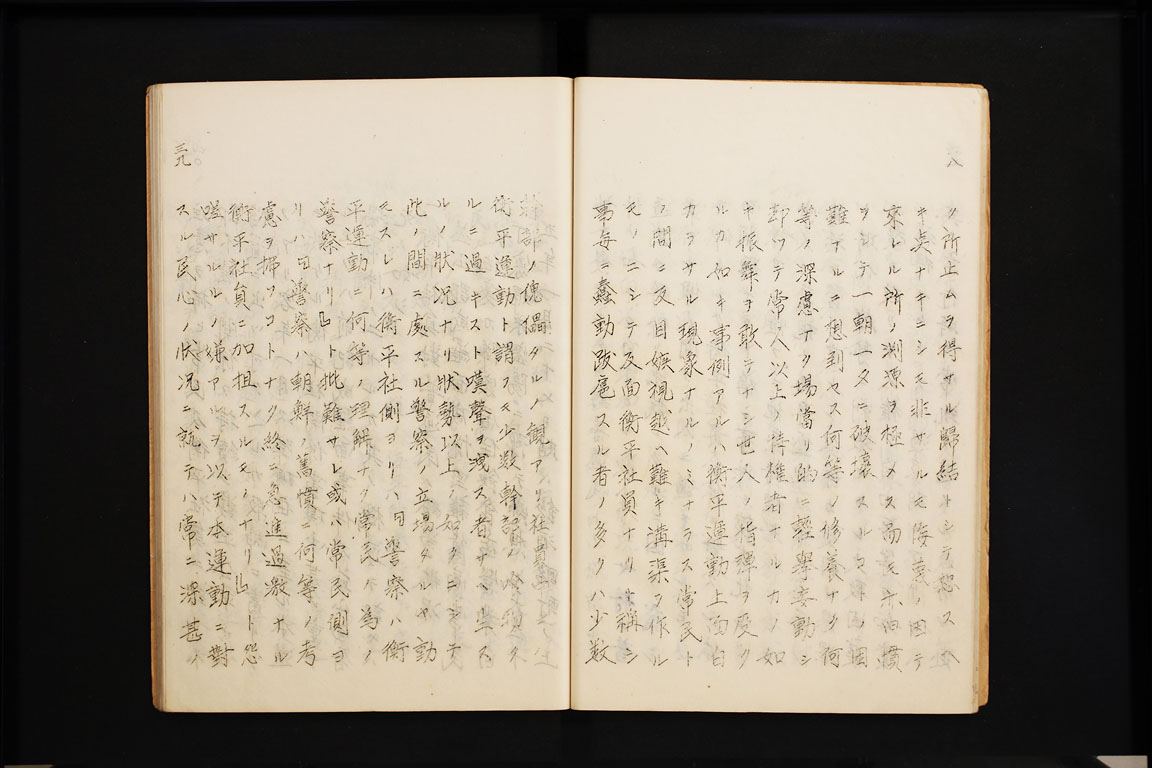 ク所止ムヲ得サル歸結トシテ恕ス ヘ
キ点ナキニシモ非サルモ侮蔑ノ因テ
來レル所ノ渕源ヲ極メス而モ 旧慣
ヲシテ一朝一夕ニ破壞スルコ ノ困
難ナルニ想到セス何等ノ修養ナク何
等ノ深慮ナク場當リ的ニ輕擧妄動シ
却ツテ常人以上ノ特権者ナルカノ如
キ振舞ヲ敢テナシ世人ノ指彈ヲ受ク
ルカ如キ事例アルハ衡平運動上面白
カラサル現象ナルノミナラス常民ト
ノ間ニ反目嫉視越ヘ難キ溝渠ヲ作ル
モノニシテ反面衡平社員ナリト稱シ
事每ニ蠢動跋扈スル者ノ多クハ少数
幹部ノ傀儡タルノ観アリ社 ハ
衡平運動ト謂フモ少数幹部ノ ク
ルニ過キスト嘆聲ヲ洩ス者サヘ生ス
ルノ狀況ナリ狀勢以上ノ如クニシテ
此ノ間ニ處スル警察ノ立場タルヤ動
モスレハ衡平社側ヨリハ『警察ハ衡
平運動ニ何等ノ理解ナク常民ノ為ノ
警察ナリ』ト批難サレ或ハ常民側ヨ
リハ『警察ハ朝鮮ノ舊慣ニ何等ノ考
慮ヲ拂フコトナク終ニ急進過激ナル
衡平社員ニ加担スルモノナリ』ト怨
嗟サルルノ嫌アルヲ以テ本運動ニ對
スル民心ノ狀況ニ就テハ常ニ深甚ノ
三九